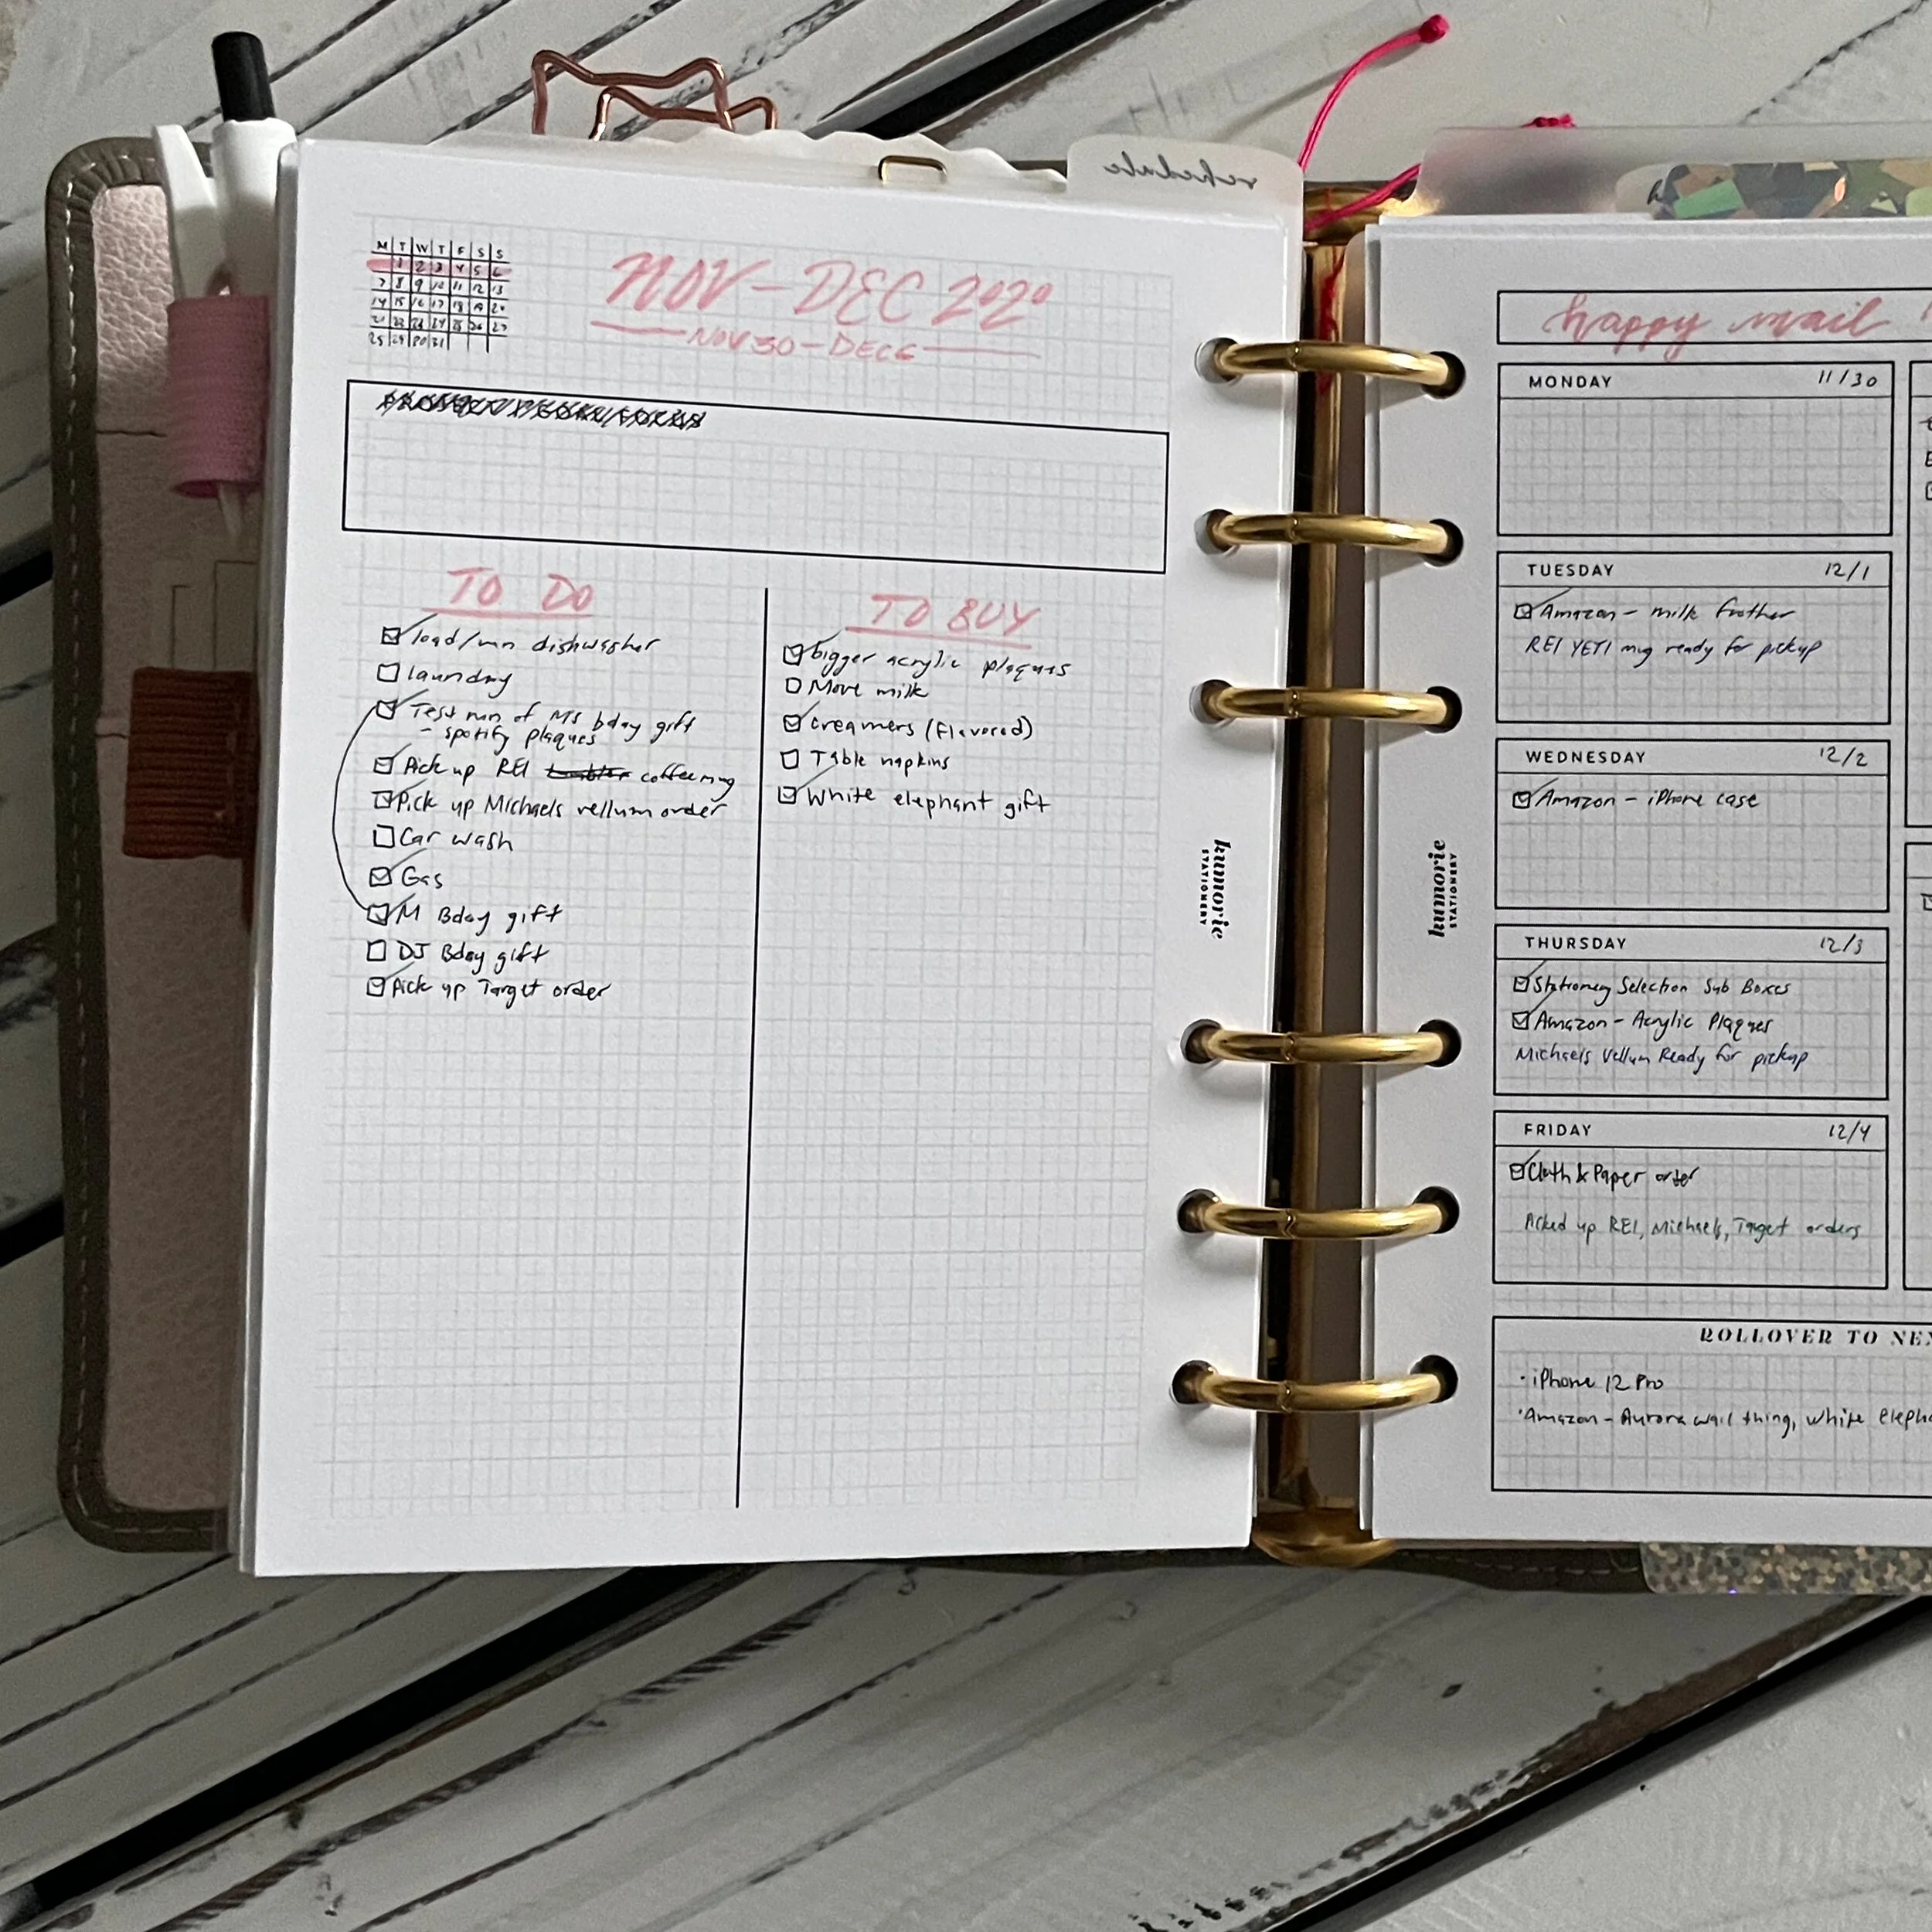 schedule
M T W T F S S
1 2 3 4 5 6
7 8 9 10 11 12 13
14 15 16 17 18 19 20
21 22 23 24 25 26 27
25 29 30 31
NOV - DEC 2020
NOV 30 - DEC 6
TO DO
load/run dishwasher
laundry
Test run of M's bday gift
- spotify plaques
Pick up REI tumbler coffee mug
Pick up Michaels vellum order
Car wash
Gas
M Bday gift
DJ Bday gift
Pick up Target order
TO BUY
bigger acrylic plaques
More milk
creamers (flavored)
Table napkins
White elephant gift
kumorie
STATIONERY
kumorie
STATIONERY
happy mail
MONDAY 11/30
TUESDAY 12/1
Amazon - milk frother
REI YETI mug ready for pickup
WEDNESDAY 12/2
Amazon - iPhone case
THURSDAY 12/3
Stationery Selection Sub Boxes
Amazon - Acrylic Plaques
Michaels Vellum Ready for pickup
FRIDAY 12/4
Cloth & Paper order
Picked up REI, Michaels, Target orders
ROLLOVER TO NE
· iPhone 12 Pro
· Amazon - Aurora wall thing, white eleph